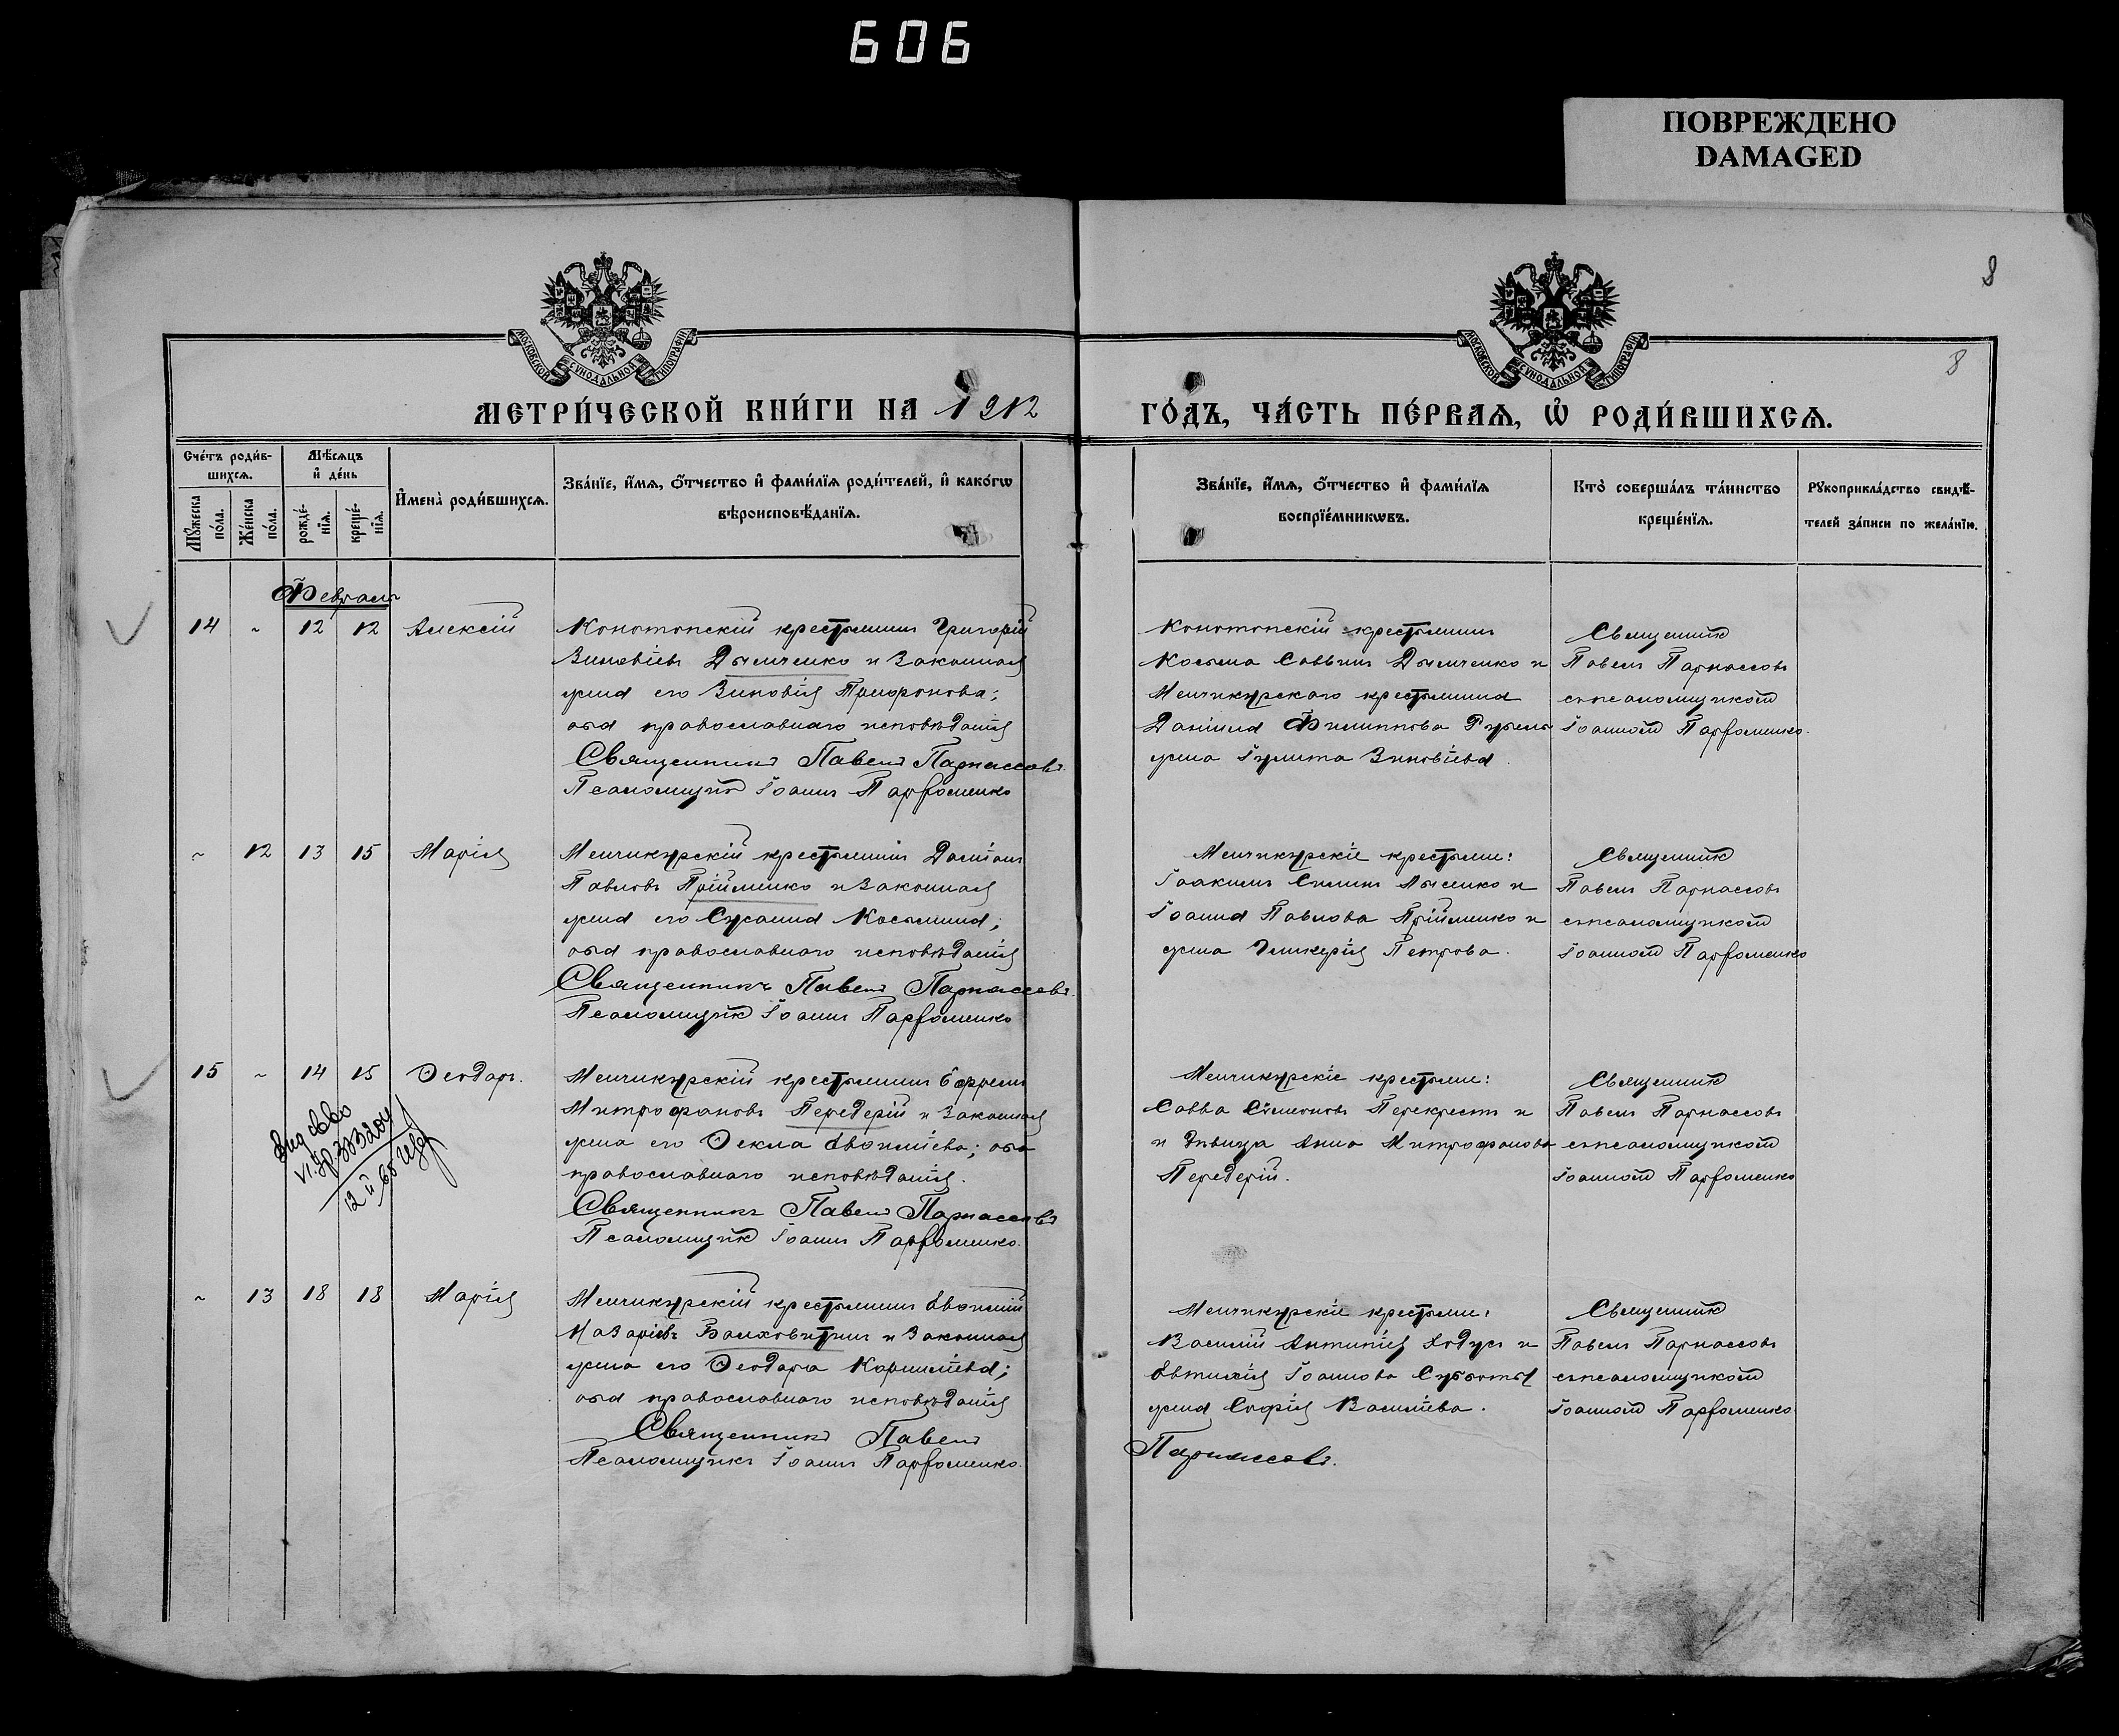 606
ПОВРЕЖДЕНО
DAMAGED
8
8
МОСКОВСКОЙ СѴНОДАЛЬНОЙ ТИПОГРАФІИ
МОСКОВСКОЙ СѴНОДАЛЬНОЙ ТИПОГРАФІИ
МЕТРИ́ЧЕСКОЙ КНИ́ГИ НА 1912 ГО́ДЪ, ЧА́СТЬ ПЕ́РВАѦ, Ѡ҆ РОДИ́ВШИХСѦ.
Сче́тъ роди́в-
шихсѧ.
Мꙋ́жеска по́ла.
Же́нска по́ла.
Мѣ́сѧцъ
и҆ де́нь
рожде́-
нїѧ.
креще́-
нїѧ.
И҆мена̀ роди́вшихсѧ.
Зва́нїе, и҆́мѧ, ѻ҆́тчество и҆ фами́лїѧ роди́телей, и҆ како́гѡ
вѣроисповѣ́данїѧ.
Зва́нїе, и҆́мѧ, ѻ҆́тчество и҆ фами́лїѧ
воспрїе́мникѡвъ.
Кто̀ соверша́лъ та́инство
креще́нїѧ.
Рꙋкоприкла́дство свидѣ́-
телей за́писи по жела́нїю.
Февраль
14 ~ 12 12 Алексій
Конотопскій крестьянинъ Григорій
Зиновіевъ Дымченко и законная
жена его Зиновія Трифонова;
оба православнаго исповѣданія
Священникъ Павелъ Парнассовъ.
Псаломщикъ Іоаннъ Парфоменко
Конотопскій крестьянинъ
Косьма Саввинъ Дымченко и
Менчикурскаго крестьянина
Даніила Филиппова
жена Іулита Зиновіева.
Священникъ
Павелъ Парнассовъ
съ псаломщикомъ
Іоанномъ Парфоменко.
~ 12 13 15 Марія
Менчикурскій крестьянинъ Даміанъ
Павловъ Прійменко и законная
жена его Сусанна Косьмина;
оба православнаго исповѣданія
Священникъ Павелъ Парнассовъ.
Псаломщикъ Іоаннъ Парфоменко
Менчикурскіе крестьяне:
Іоакимъ Силинъ Лысенко и
Іоанна Павлова Прійменко и
жена Гликерія Петрова.
Священникъ
Павелъ Парнассовъ
съ псаломщикомъ
Іоанномъ Парфоменко
15 ~ 14 15 Ѳеодоръ.
Менчикурскій крестьянинъ Ефремъ
Митрофановъ Передерій и законная
жена его Ѳекла Евфиміева; оба
православнаго исповѣданія.
Священникъ Павелъ Парнассовъ
Псаломщикъ Іоаннъ Парфоменко.
Менчикурскіе крестьяне:
Савва Симеоновъ Перекрестъ и
и дѣвица Анна Митрофанова
Передерій.
Священникъ
Павелъ Парнассовъ
съ псаломщикомъ
Іоанномъ Парфоменко
~ 13 18 18 Марія
Менчикурскій крестьянинъ Евфимій
Назаріевъ и законная
жена его Ѳеодора Корниліева;
оба православнаго исповѣданія
Священникъ Павелъ
Псаломщикъ Іоаннъ Парфоменко.
Менчикурскіе крестьяне:
Василій и
Евтихія Іоаннова Субботы
жена Софія Васильева.
Парнассовъ.
Священникъ
Павелъ Парнассовъ
съ псаломщикомъ
Іоанномъ Парфоменко